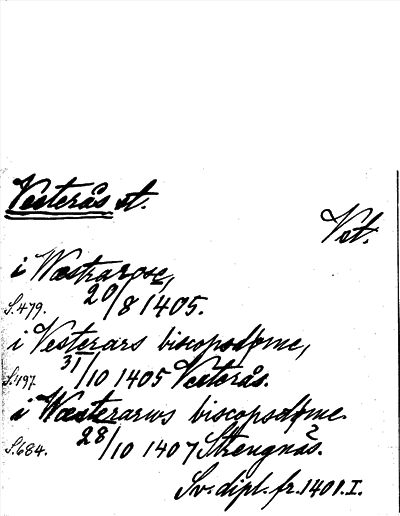 Vesterås st.
Vst.
i Wæstrarose,
S. 479. 20/8 1405.
i Vesterårs biscopsdøme,
S. 497. 31/10 1405 Vesterås.
i Wæsterarws biscopsdøme
S. 684. 28/10 1407 Strengnäs.
Sv. dipl. fr. 1401. I.